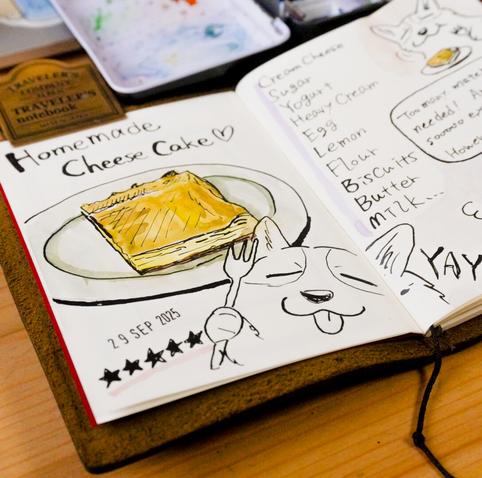 TRAVELER'S
COMPANY
TRAVELER'S
notebook
Homemade
Cheese Cake♡
29 SEP 2025
★★★★★
Cream Cheese
Sugar
Yogurt
Heavy Cream
Egg
Lemon
Flour
Biscuits
Butter
Milk...
Too many
needed!
However
YAY